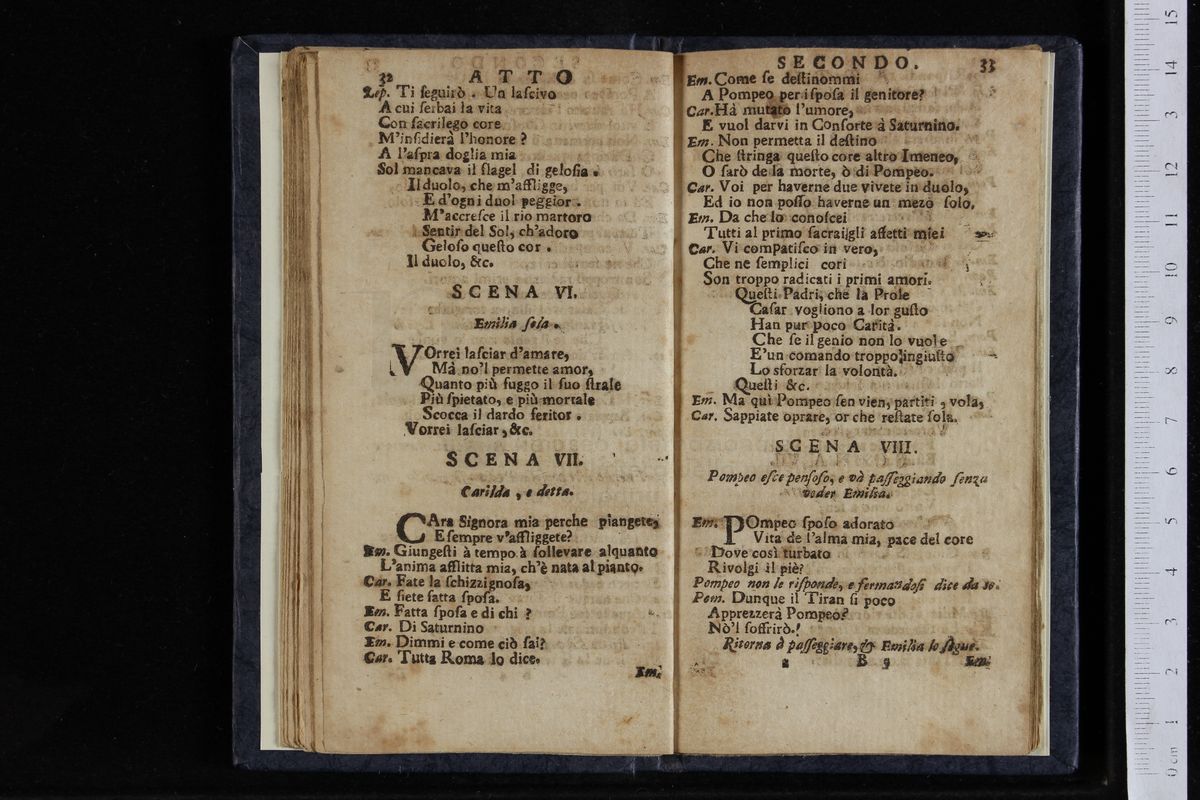 32 ATTO
Lep. Ti ſeguirò . Un laſcivo
A cui ſerbai la vita
Con ſacrilego core
M'inſidierà l'honore ?
A l'aſpra doglia mia
Sol mancava il flagel di geloſia .
Il duolo, che m'affligge,
E d'ogni duol peggior .
M'accreſce il rio martoro
Sentir del Sol, ch'adoro
Geloſo queſto cor .
Il duolo, &c.
SCENA VI.
Emilia ſola .
VOrrei laſciar d'amare,
Mà no'l permette amor,
Quanto più fuggo il ſuo ſtrale
Più ſpietato, e più mortale
Scocca il dardo feritor .
Vorrei laſciar, &c.
SCENA VII.
Carilda , e detta.
CAra Signora mia perche piangete,
E ſempre v'affliggete?
Em. Giungeſti à tempo à ſollevare alquanto
L'anima afflitta mia, ch'è nata al pianto.
Car. Fate la ſchizzignoſa,
E ſiete fatta ſpoſa.
Em. Fatta ſpoſa e di chi ?
Car. Di Saturnino
Em. Dimmi e come ciò ſai?
Car. Tutta Roma lo dice.
Em.
SECONDO. 33
Em. Come ſe deſtinommi
A Pompeo per iſpoſa il genitore?
Car. Hà mutato l'umore,
E vuol darvi in Conſorte à Saturnino.
Em. Non permetta il deſtino
Che ſtringa queſto core altro Imeneo,
O ſarò de la morte, ò di Pompeo.
Car. Voi per haverne due vivete in duolo,
Ed io non poſſo haverne un mezo ſolo.
Em. Da che lo conoſcei
Tutti al primo ſacrai gli affetti miei
Car. Vi compatiſco in vero,
Che ne ſemplici cori
Son troppo radicati i primi amori.
Queſti Padri, che la Prole
Caſar vogliono a lor guſto
Han pur poco Carità.
Che ſe il genio non lo vuole
E'un comando troppo ingiuſto
Lo sforzar la volontà.
Queſti &c.
Em. Ma quì Pompeo ſen vien, partiti , vola,
Car. Sappiate oprare, or che reſtate ſola.
SCENA VIII.
Pompeo eſce penſoſo, e và paſſeggiando ſenza
veder Emilia.
Em. POmpeo ſpoſo adorato
Vita de l'alma mia, pace del core
Dove così turbato
Rivolgi il piè?
Pompeo non le riſponde, e fermandoſi dice da se.
Pom. Dunque il Tiran ſi poco
Apprezzerà Pompeo?
Nò'l ſoffrirò.!
Ritorna à paſſeggiare, & Emilia lo ſegue.
a B 9 Em.
15
14
13
12
11
10
9
8
7
6
5
4
3
2
1
0 cm